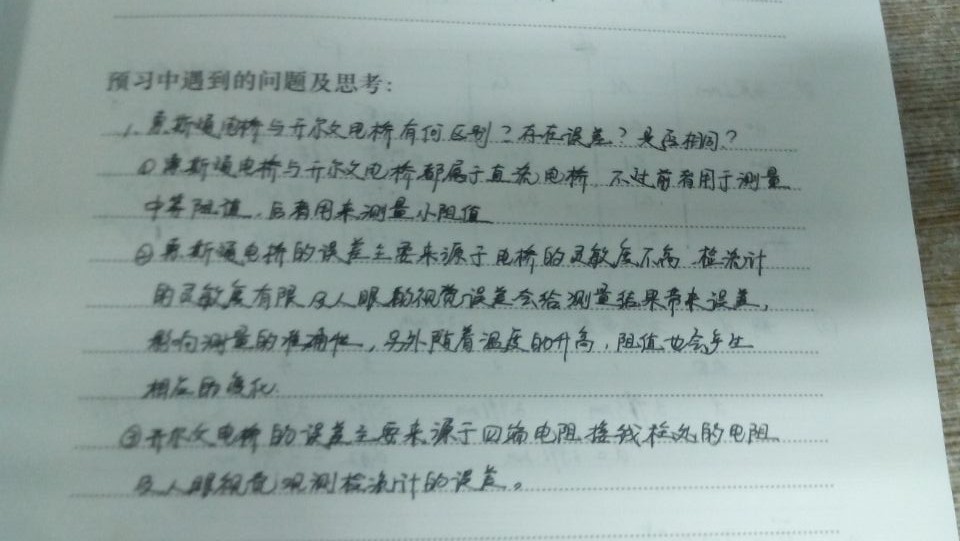 预习中遇到的问题及思考：
1、惠斯通电桥与开尔文电桥有何区别？存在误差？是否相同？
①惠斯通电桥与开尔文电桥都属于直流电桥 不过前者用于测量
中等阻值，后者用来测量小阻值
②惠斯通电桥的误差主要来源于电桥的灵敏度不高 检流计
的灵敏度有限及人眼的视觉误差会给测量结果带来误差，
影响测量的准确性，另外随着温度的升高，阻值也会产生
相应的变化
③开尔文电桥的误差主要来源于四端电阻接线柱处的电阻
及人眼视觉观测检流计的误差。